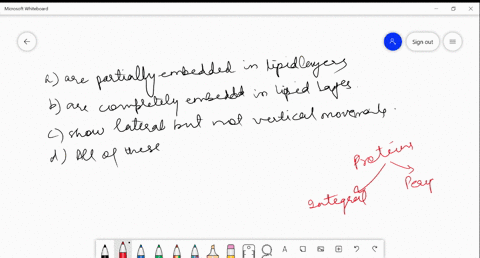 Microsoft Whiteboard
Sign out
a) are partially embedded in lipid layers
b) are completely embedded in lipid layers
c) show lateral but not vertical movements.
d) All of these
Proteins
Integral
Perp
A